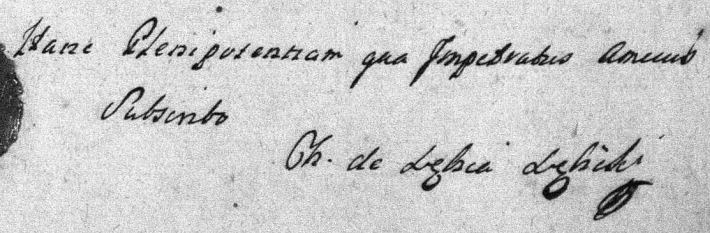 Hanc Plenipotentiam qua Impetratus Amicus
Subscribo
Ch. de